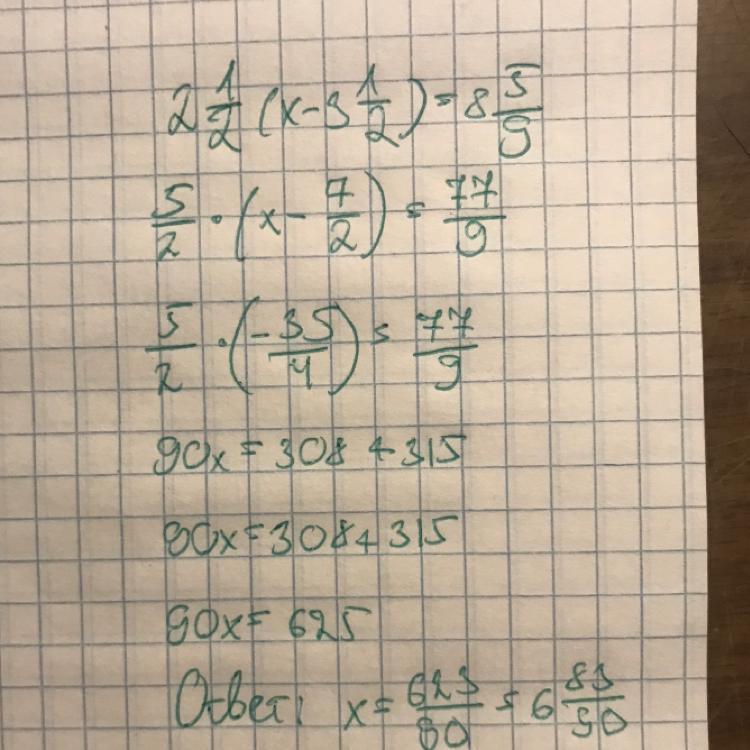 2 1/2 (x - 3 1/2) = 8 5/9
5/2 · (x - 7/2) = 77/9
5/2 · (-35/4) = 77/9
90x = 308 + 315
90x = 308 + 315
90x = 625
Ответ: x = 623/90 = 6 83/90